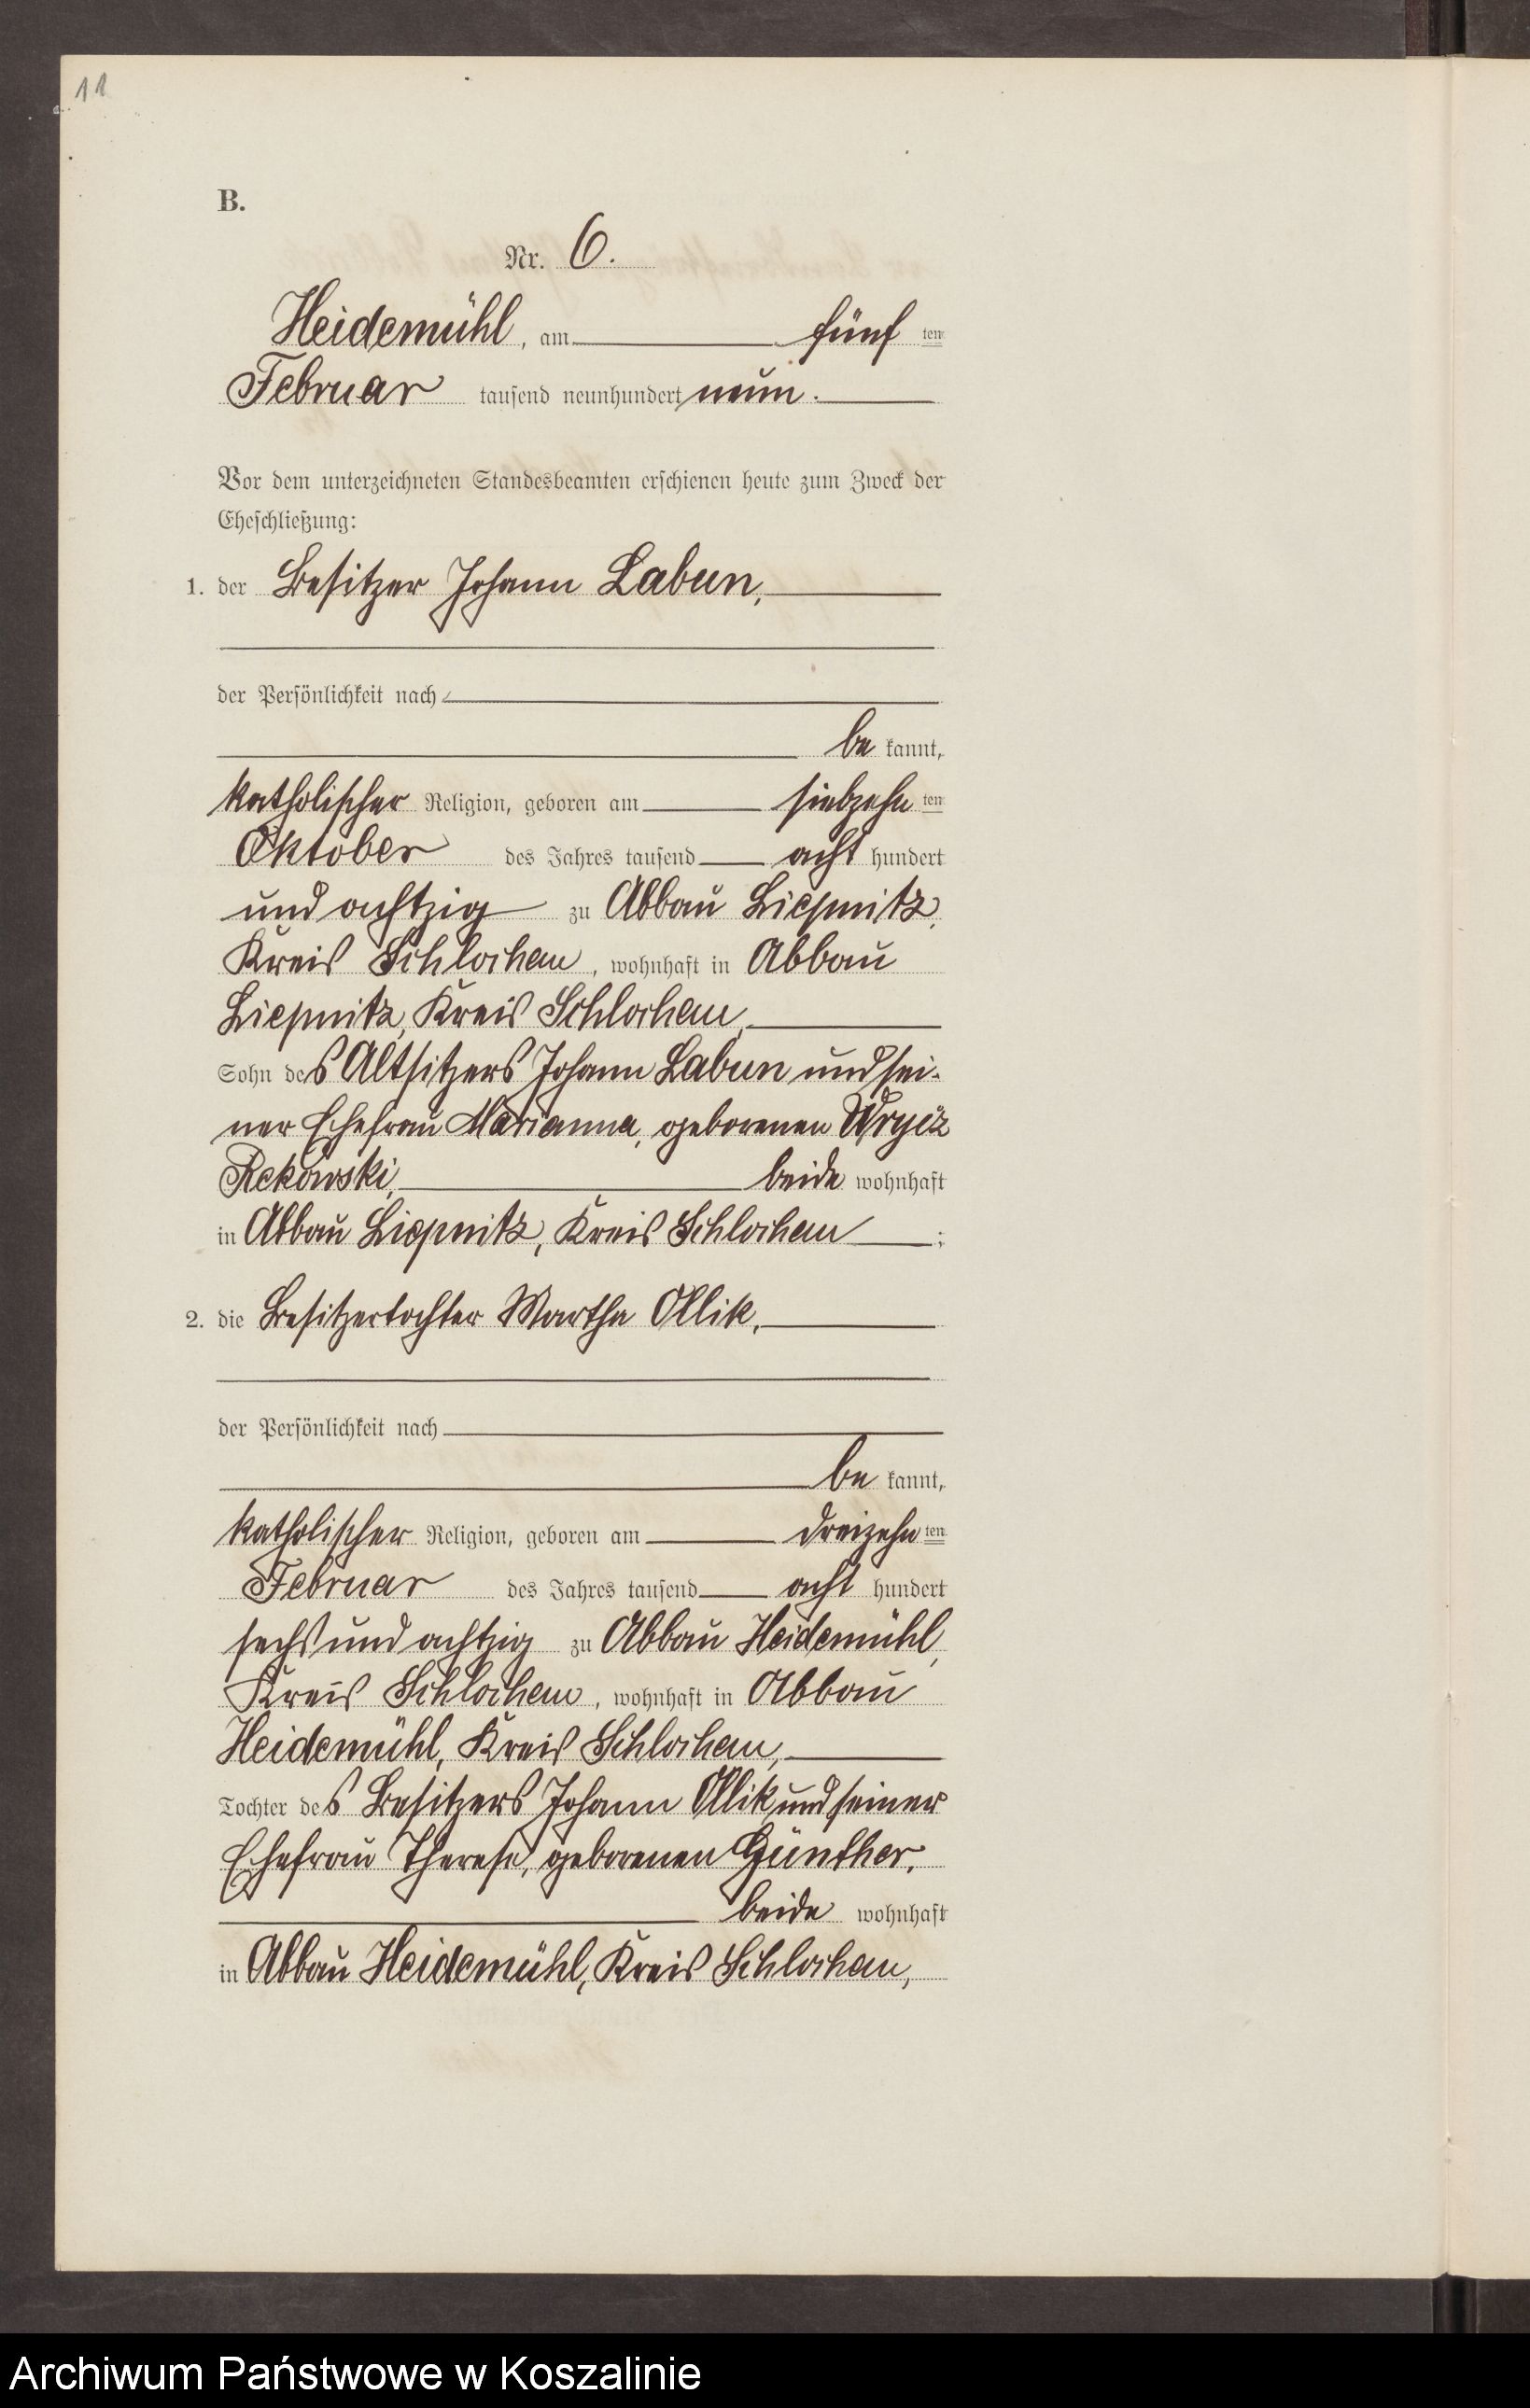 11
B.
Nr. 6.
Heidemühl, am fünf ten
Februar tausend neunhundert neun.
Vor dem unterzeichneten Standesbeamten erschienen heute zum Zweck der
Eheschließung:
1. der Besitzer Johann Labun,
der Persönlichkeit nach
be kannt,
katholischer Religion, geboren am siebzehn ten
Oktober des Jahres tausend acht hundert
und achtzig zu Abbau Liepnitz,
Kreis Schlochau, wohnhaft in Abbau
Liepnitz, Kreis Schlochau,
Sohn des Altsitzers Johann Labun und sei-
ner Ehefrau Marianna, geborenen
Rekowski, beide wohnhaft
in Abbau Liepnitz, Kreis Schlochau ;
2. die Besitzertochter Martha Ollik,
der Persönlichkeit nach
be kannt,
katholischer Religion, geboren am dreizehn ten
Februar des Jahres tausend acht hundert
sechs und achtzig zu Abbau Heidemühl,
Kreis Schlochau, wohnhaft in Abbau
Heidemühl, Kreis Schlochau,
Tochter des Besitzers Johann Ollik und seiner
Ehefrau Therese, geborenen Günther,
beide wohnhaft
in Abbau Heidemühl, Kreis Schlochau,
Archiwum Państwowe w Koszalinie